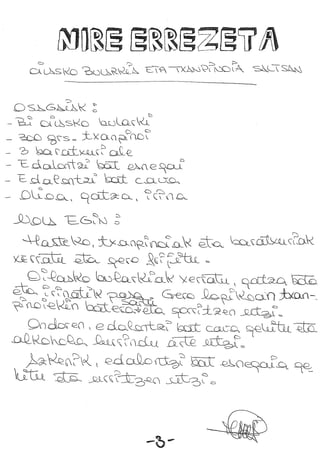 NIRE ERREZETA
OILASKO BULARKIA ETA TXANPINOIA SALTSAN
OSAGAIAK:
- Bi oilasko bularki
- 300 grs. txanpinoi
- 3 baratxuri ale
- Edalontzi bat esnegai
- Edalontzi bat cava
- Olioa, gatza, irina
NOLA EGIN:
Hasteko, txanpinoiak eta baratxuriak
xerratu eta gero frijitu.
Oilasko bularkiak xerratu, gatza bota
eta irinatik pasa. Gero lapikoan txan-
pinoiekin batera eta gorritzen utzi.
Ondoren, edalontzi bat cava gehitu eta
alkohola lurrindu arte utzi.
Azkenik, edalontzi bat esnegaia ge
hitu eta utzi.
-3-